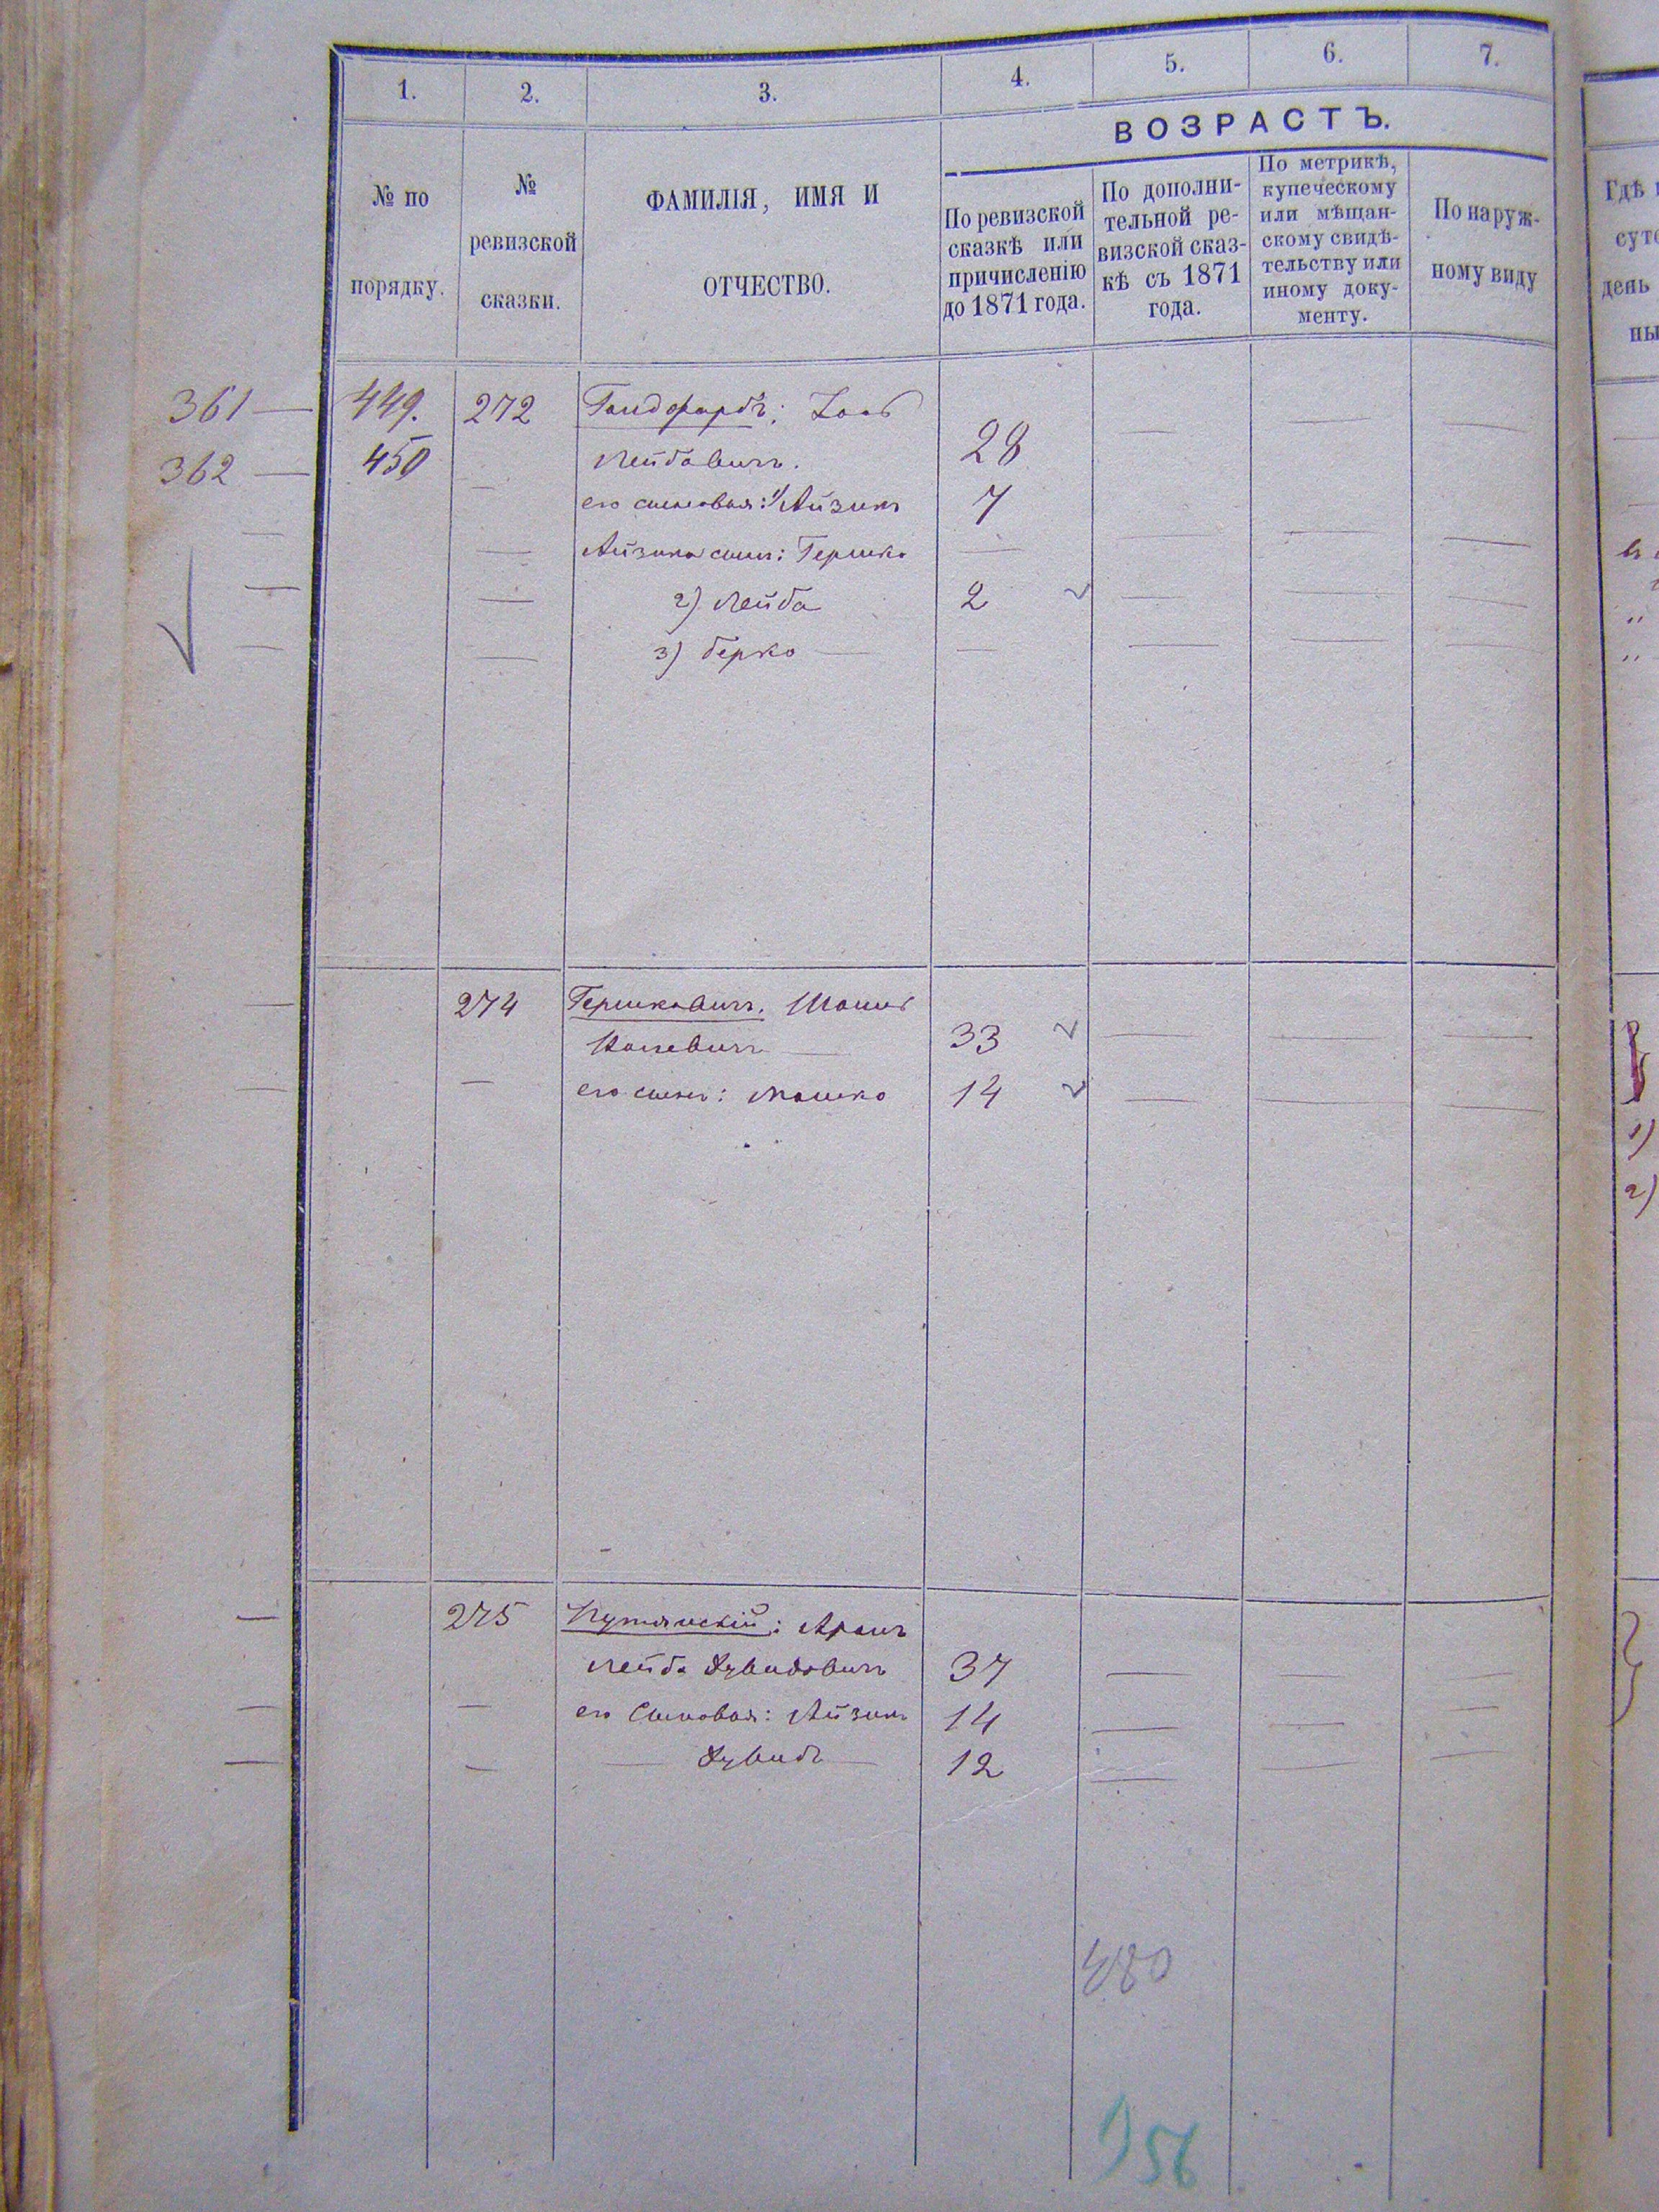 1. 2. 3. 4. 5. 6. 7.
ВОЗРАСТЪ.
№ по
порядку.
№
ревизской
сказки.
ФАМИЛІЯ, ИМЯ И
ОТЧЕСТВО.
По ревизской
сказкѣ или
причисленію
до 1871 года.
По дополни-
тельной ре-
визской сказ-
кѣ съ 1871
года.
По метрикѣ,
купеческому
или мѣщан-
скому свидѣ-
тельству или
иному доку-
менту.
По наруж-
ному виду
361 — 449. 272
362 — 450 Лейбовичъ. 28
его сыновья: 1) Айзикъ 7
Айзика сынъ: Гершко —
2) Лейба 2
3) Берко —
274 Гершковичъ.
33
его сынъ: Мошко 14
275 Аронъ
Лейба Дувидовичъ 37
его Сыновья: Айзикъ 14
— Дувидъ — 12
480
Гдѣ
день
1)
2)